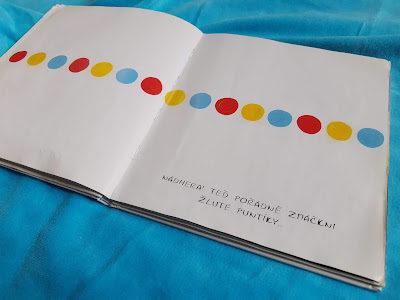 NÁDHERA! TEĎ POŘÁDNĚ ZMÁČKNI
ŽLUTÉ PUNTÍKY.